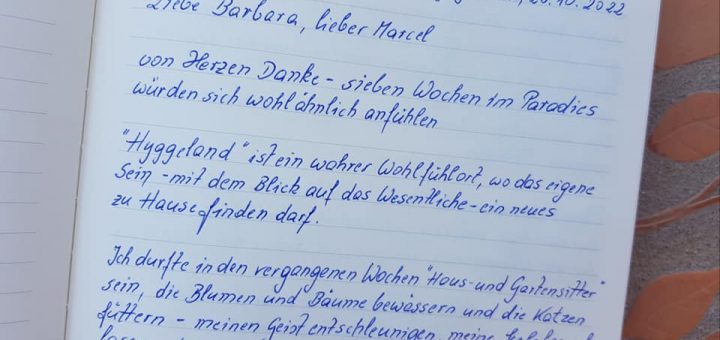 20.10.2022
Liebe Barbara, lieber Marcel
von Herzen Danke - sieben Wochen im Paradies
würden sich wohl ähnlich anfühlen
"Hyggeland" ist ein wahrer Wohlfühlort, wo das eigene
Sein - mit dem Blick auf das Wesentliche - ein neues
zu Hause finden darf.
Ich durfte in den vergangenen Wochen "Haus- und Gartensitter"
sein, die Blumen und Bäume bewässern und die Katzen
füttern - meinen Geist entschleunigen, meine